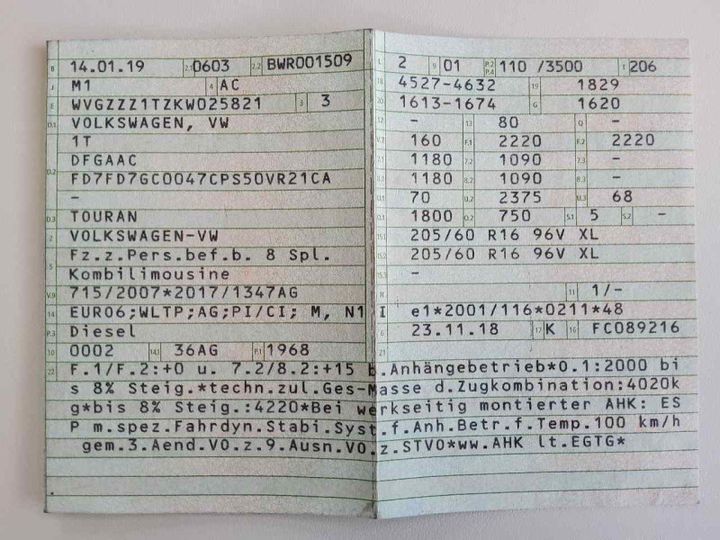 B 14.01.19 2.1 0603 2.2 BWR001509
J M1 4 AC
E WVGZZZ1TZKW025821 3 3
D.1 VOLKSWAGEN, VW
1T
DFGAAC
D.2 FD7FD7GC0047CPS50VR21CA
-
D.3 TOURAN
2 VOLKSWAGEN-VW
5 Fz.z.Pers.bef.b. 8 Spl.
Kombilimousine
V.9 715/2007*2017/1347AG
14 EURO6;WLTP;AG;PI/CI; M, N1 I
P.3 Diesel
10 0002 14.1 36AG P.1 1968
L 2 9 01 P.2 P.4 110 /3500 T 206
18 4527-4632 19 1829
20 1613-1674 G 1620
12 - 13 80 Q -
V.7 160 F.1 2220 F.2 2220
7.1 1180 7.2 1090 7.3 -
8.1 1180 8.2 1090 8.3 -
U.1 70 U.2 2375 U.3 68
O.1 1800 O.2 750 S.1 5 S.2 -
15.1 205/60 R16 96V XL
15.2 205/60 R16 96V XL
15.3 -
R 11 1/-
K e1*2001/116*0211*48
6 23.11.18 17 K 16 FC089216
21
22 F.1/F.2:+0 u. 7.2/8.2:+15 b.Anhängebetrieb*0.1:2000 bi
s 8% Steig.*techn.zul.Ges-Masse d.Zugkombination:4020k
g*bis 8% Steig.:4220*Bei werkseitig montierter AHK: ES
P m.spez.Fahrdyn.Stabi.Syst.f.Anh.Betr.f.Temp.100 km/h
gem.3.Aend.VO.z.9.Ausn.VO.z.STVO*ww.AHK lt.EGTG*